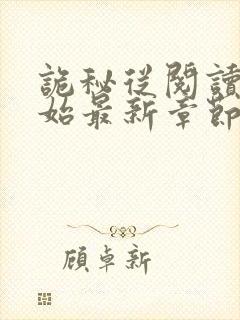 詭秘從閱讀
始最新章節
顧卓新